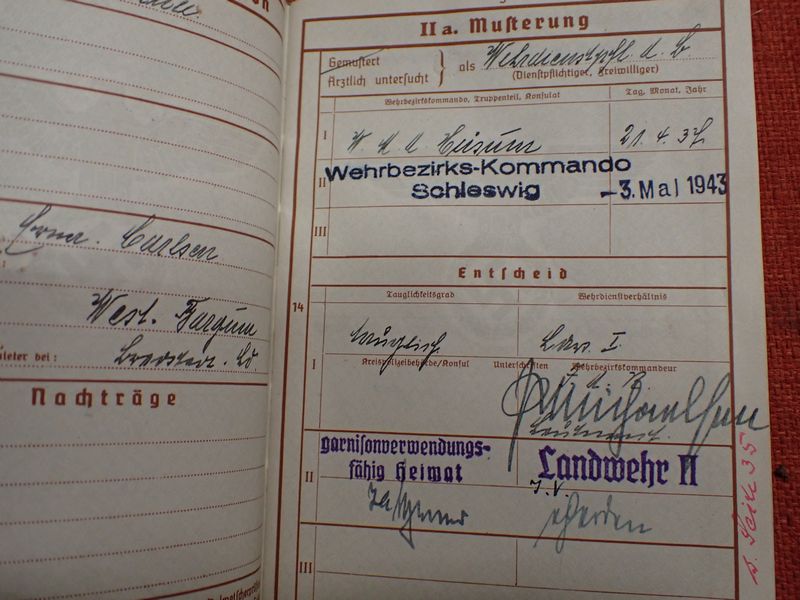 Carlsen
West. Bargum
bei:
Nachträge
IIa. Musterung
Gemustert
Ärztlich untersucht } als Wehrdienstpfl. d. B.
(Dienstpflichtiger, Freiwilliger)
Wehrbezirkskommando, Truppenteil, Konsulat
Tag, Monat, Jahr
I
21. 4. 37
II
Wehrbezirks-Kommando
Schleswig
-3. Mai 1943
III
Entscheid
14
Tauglichkeitsgrad
Wehrdienstverhältnis
I
tauglich
Ldw. I
Kreispolizeibehörde/Konsul
Unterschriften
Wehrbezirkskommandeur
Leutnant.
II
garnisonverwendungs-
fähig Heimat
Landwehr II
J. V.
III
s. Seite 35